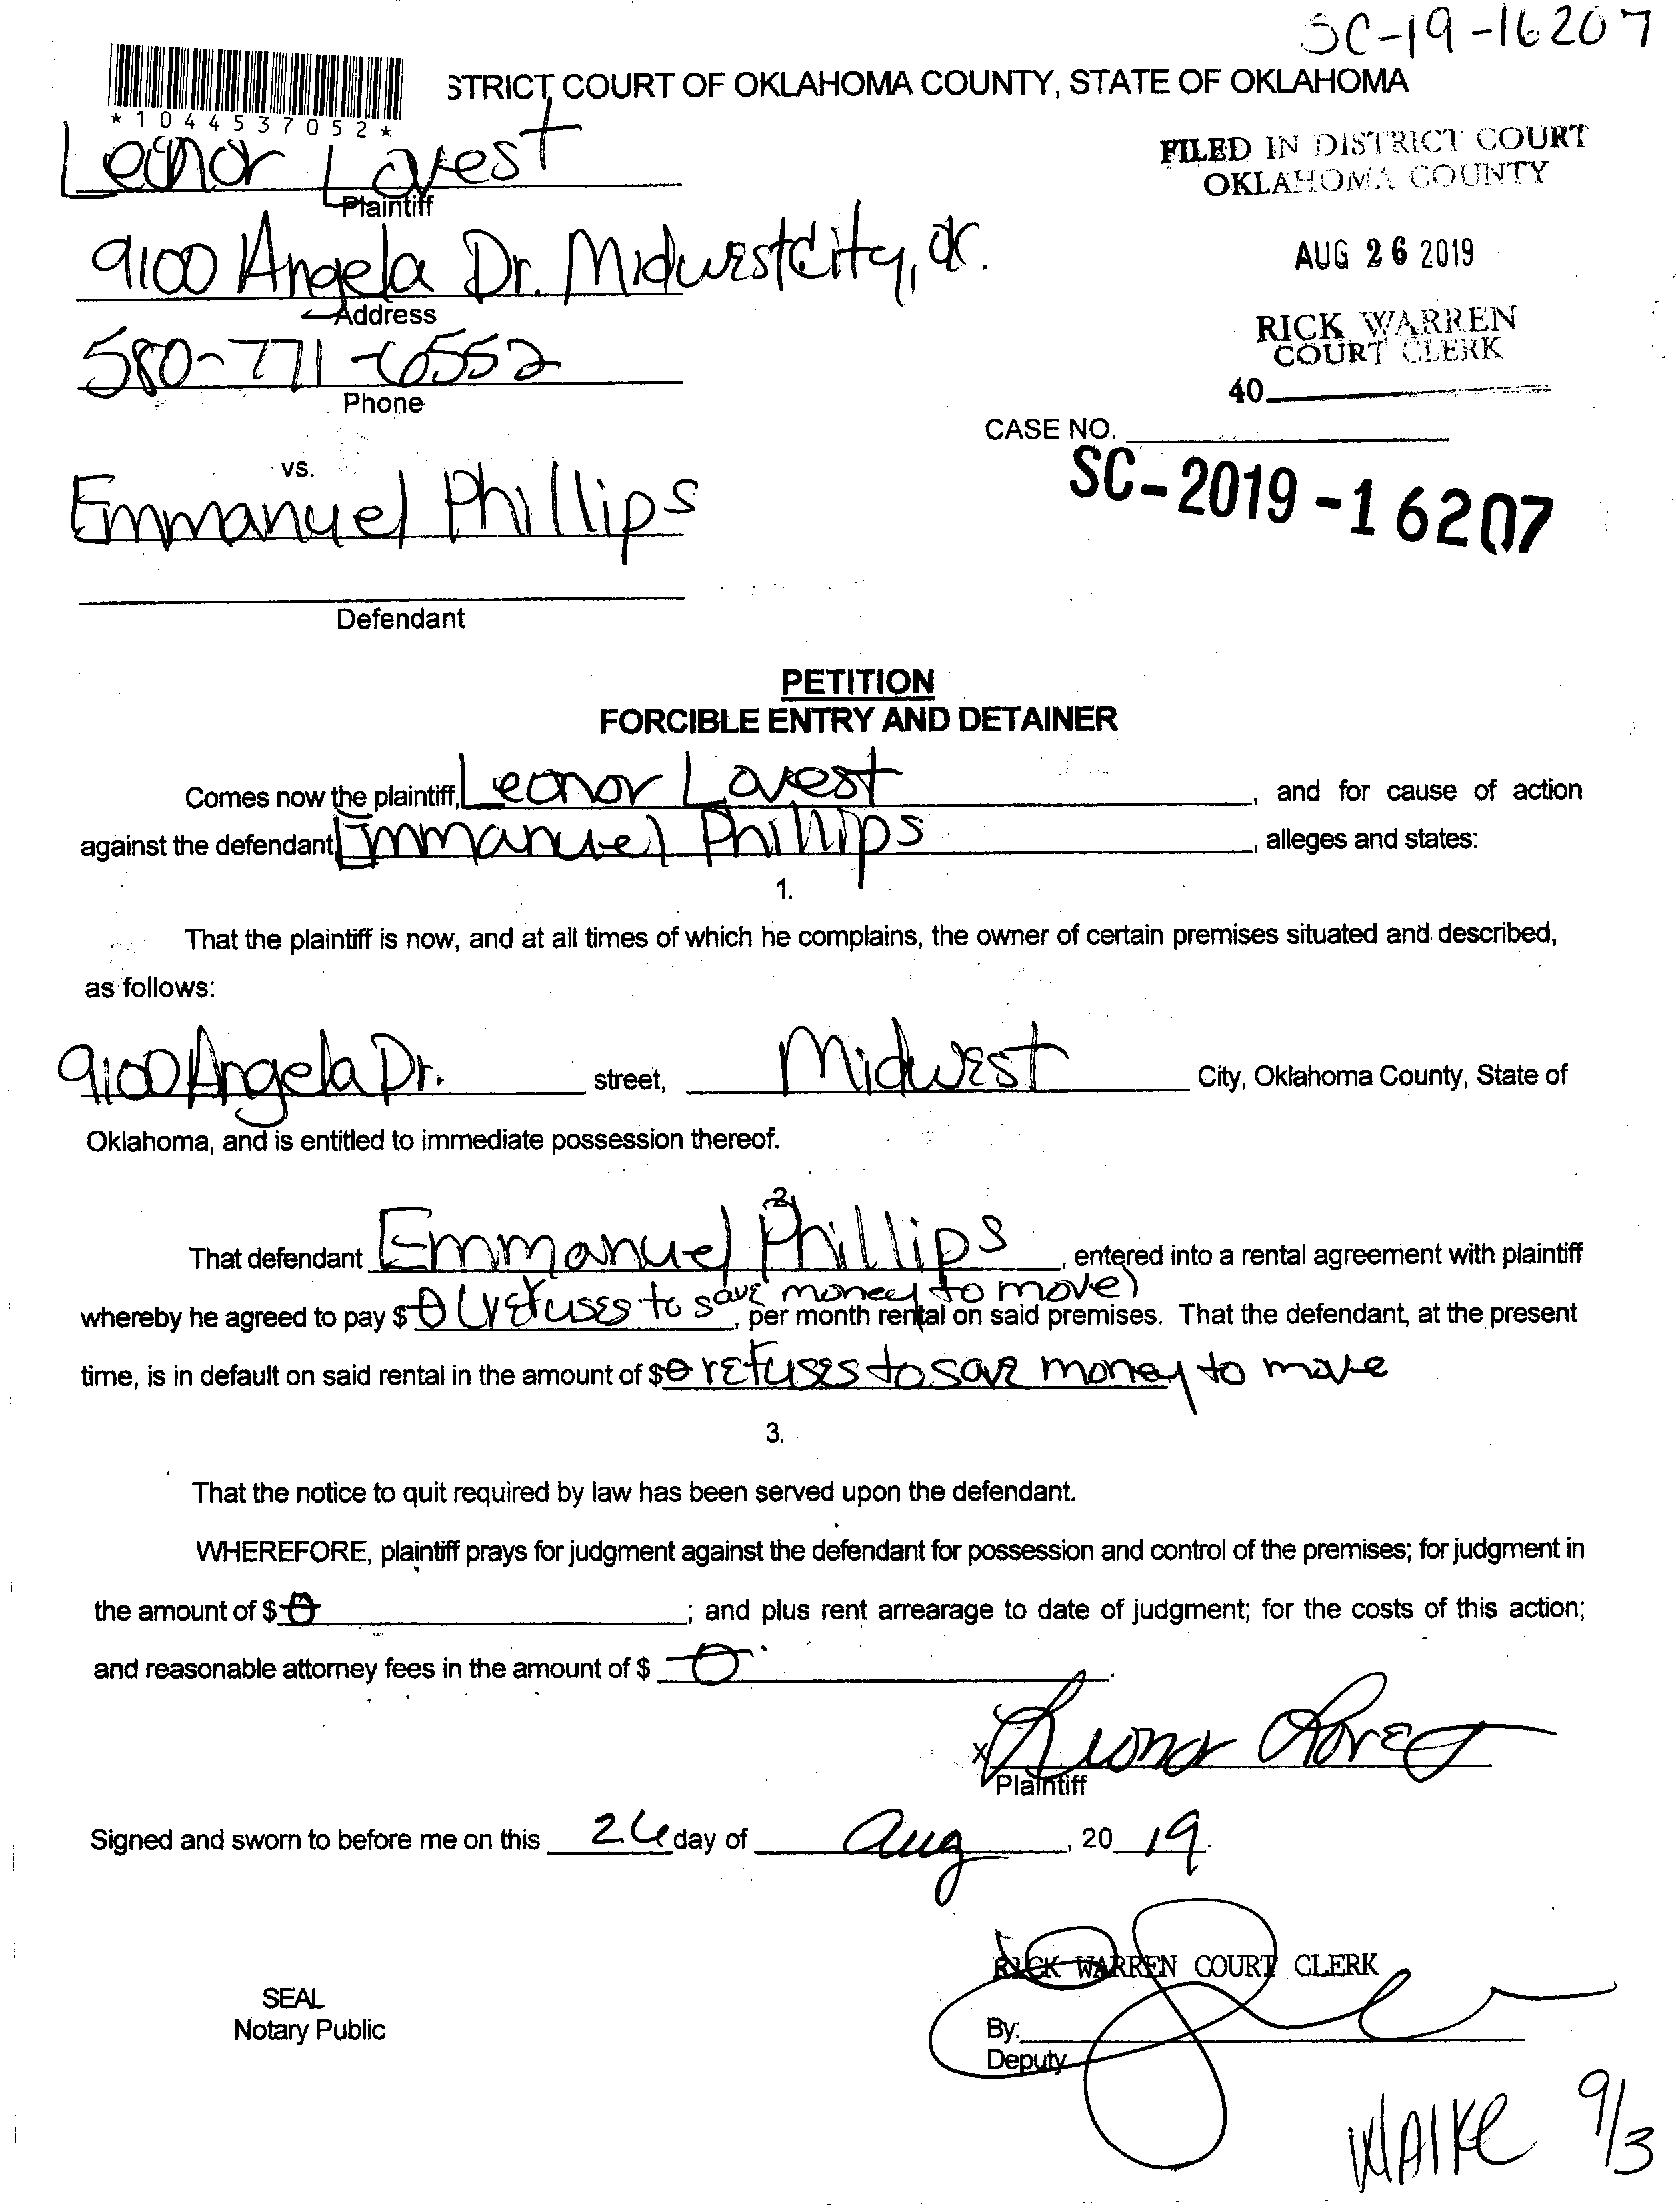 SC-19-16207
STRICT COURT OF OKLAHOMA COUNTY, STATE OF OKLAHOMA
*1044537052*
FILED IN DISTRICT COURT
OKLAHOMA COUNTY
Leonor Lovest
Plaintiff
9100 Angela Dr. Midwest City, Ok.
Address
AUG 26 2019
RICK WARREN
COURT CLERK
580-771-6552
Phone
40
CASE NO.
SC-2019-16207
vs.
Emmanuel Phillips
Defendant
PETITION
FORCIBLE ENTRY AND DETAINER
Comes now the plaintiff, Leonor Lovest, and for cause of action
against the defendant Emmanuel Phillips, alleges and states:
1.
That the plaintiff is now, and at all times of which he complains, the owner of certain premises situated and described,
as follows:
9100 Angela Dr. street, Midwest City, Oklahoma County, State of
Oklahoma, and is entitled to immediate possession thereof.
2.
That defendant Emmanuel Phillips, entered into a rental agreement with plaintiff
whereby he agreed to pay $ 0 (refuses to save money to move), per month rental on said premises. That the defendant, at the present
time, is in default on said rental in the amount of $ 0 refuses to save money to move
3.
That the notice to quit required by law has been served upon the defendant.
WHEREFORE, plaintiff prays for judgment against the defendant for possession and control of the premises; for judgment in
the amount of $ 0; and plus rent arrearage to date of judgment; for the costs of this action;
and reasonable attorney fees in the amount of $ 0.
x Leonor Lovest
Plaintiff
Signed and sworn to before me on this 26 day of Aug, 20 19.
RICK WARREN COURT CLERK
SEAL
Notary Public
By:
Deputy
WAlKe 9/3